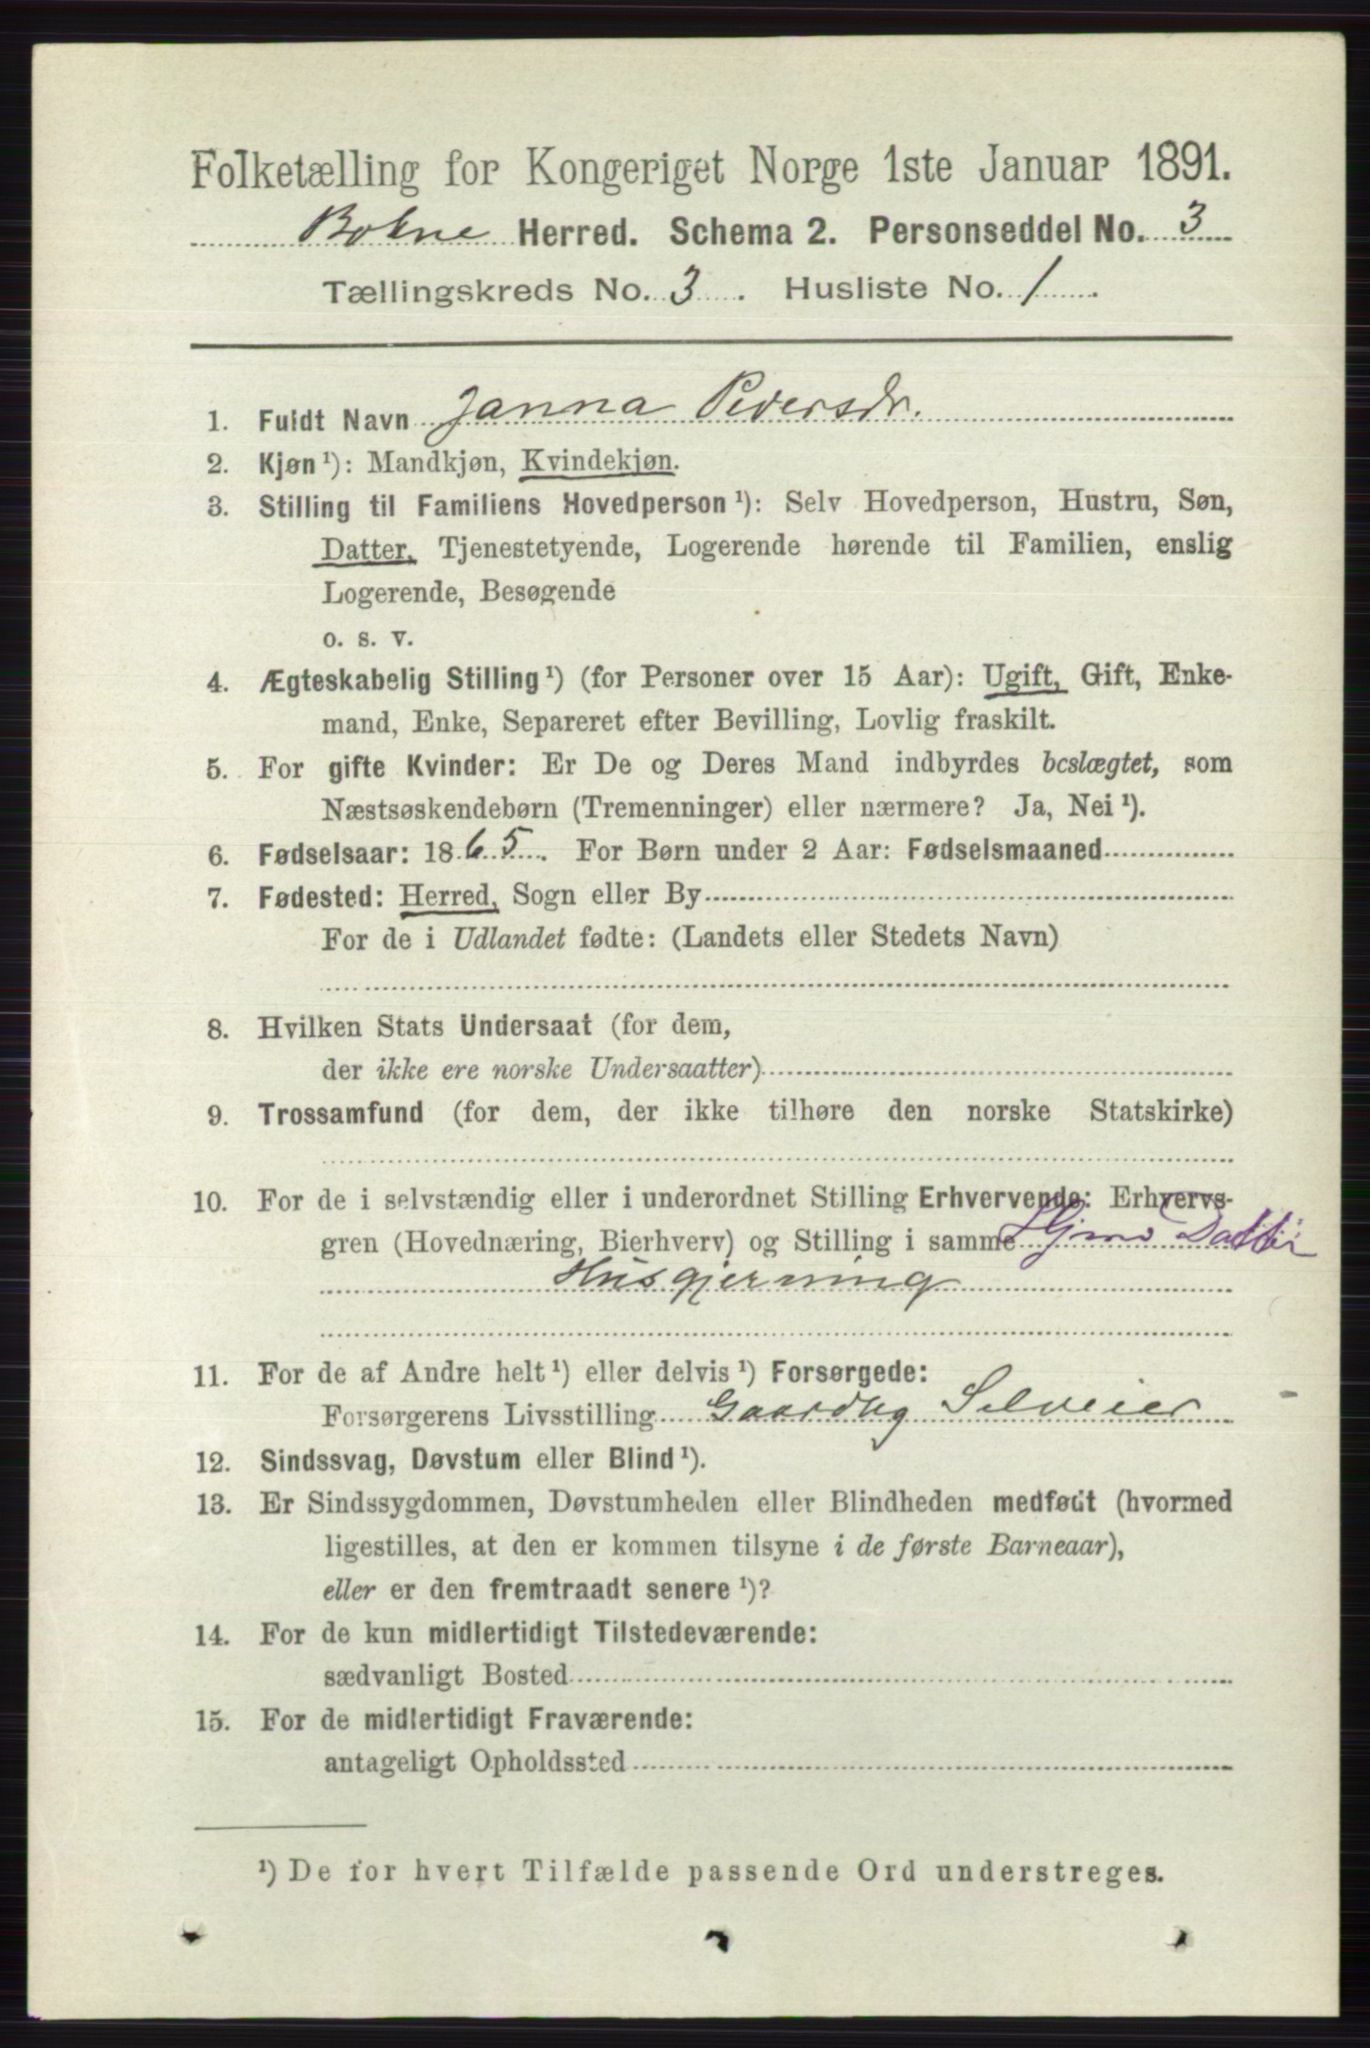 Folketælling for Kongeriget Norge 1ste Januar 1891.
Bokne Herred. Schema 2. Personseddel No. 3
Tællingskreds No. 3. Husliste No. 1.
1. Fuldt Navn Janna Pedersdr.
2. Kjøn¹): Mandkjøn, Kvindekjøn.
3. Stilling til Familiens Hovedperson¹): Selv Hovedperson, Hustru, Søn,
Datter, Tjenestetyende, Logerende hørende til Familien, enslig
Logerende, Besøgende
o. s. v.
4. Ægteskabelig Stilling¹) (for Personer over 15 Aar): Ugift, Gift, Enke-
mand, Enke, Separeret efter Bevilling, Lovlig fraskilt.
5. For gifte Kvinder: Er De og Deres Mand indbyrdes beslægtet, som
Næstsøskendebørn (Tremenninger) eller nærmere? Ja, Nei¹).
6. Fødselsaar: 1865. For Børn under 2 Aar: Fødselsmaaned
7. Fødested: Herred, Sogn eller By
For de i Udlandet fødte: (Landets eller Stedets Navn)
8. Hvilken Stats Undersaat (for dem,
der ikke ere norske Undersaatter)
9. Trossamfund (for dem, der ikke tilhøre den norske Statskirke)
10. For de i selvstændig eller i underordnet Stilling Erhvervende: Erhvervs-
gren (Hovednæring, Bierhverv) og Stilling i samme Datter
Husgjerning
11. For de af Andre helt¹) eller delvis¹) Forsørgede:
Forsørgerens Livsstilling Gaardbg Selveier
12. Sindssvag, Døvstum eller Blind¹).
13. Er Sindssygdommen, Døvstumheden eller Blindheden medfødt (hvormed
ligestilles, at den er kommen tilsyne i de første Barneaar),
eller er den fremtraadt senere¹)?
14. For de kun midlertidigt Tilstedeværende:
sædvanligt Bosted
15. For de midlertidigt Fraværende:
antageligt Opholdssted
¹) De for hvert Tilfælde passende Ord understreges.